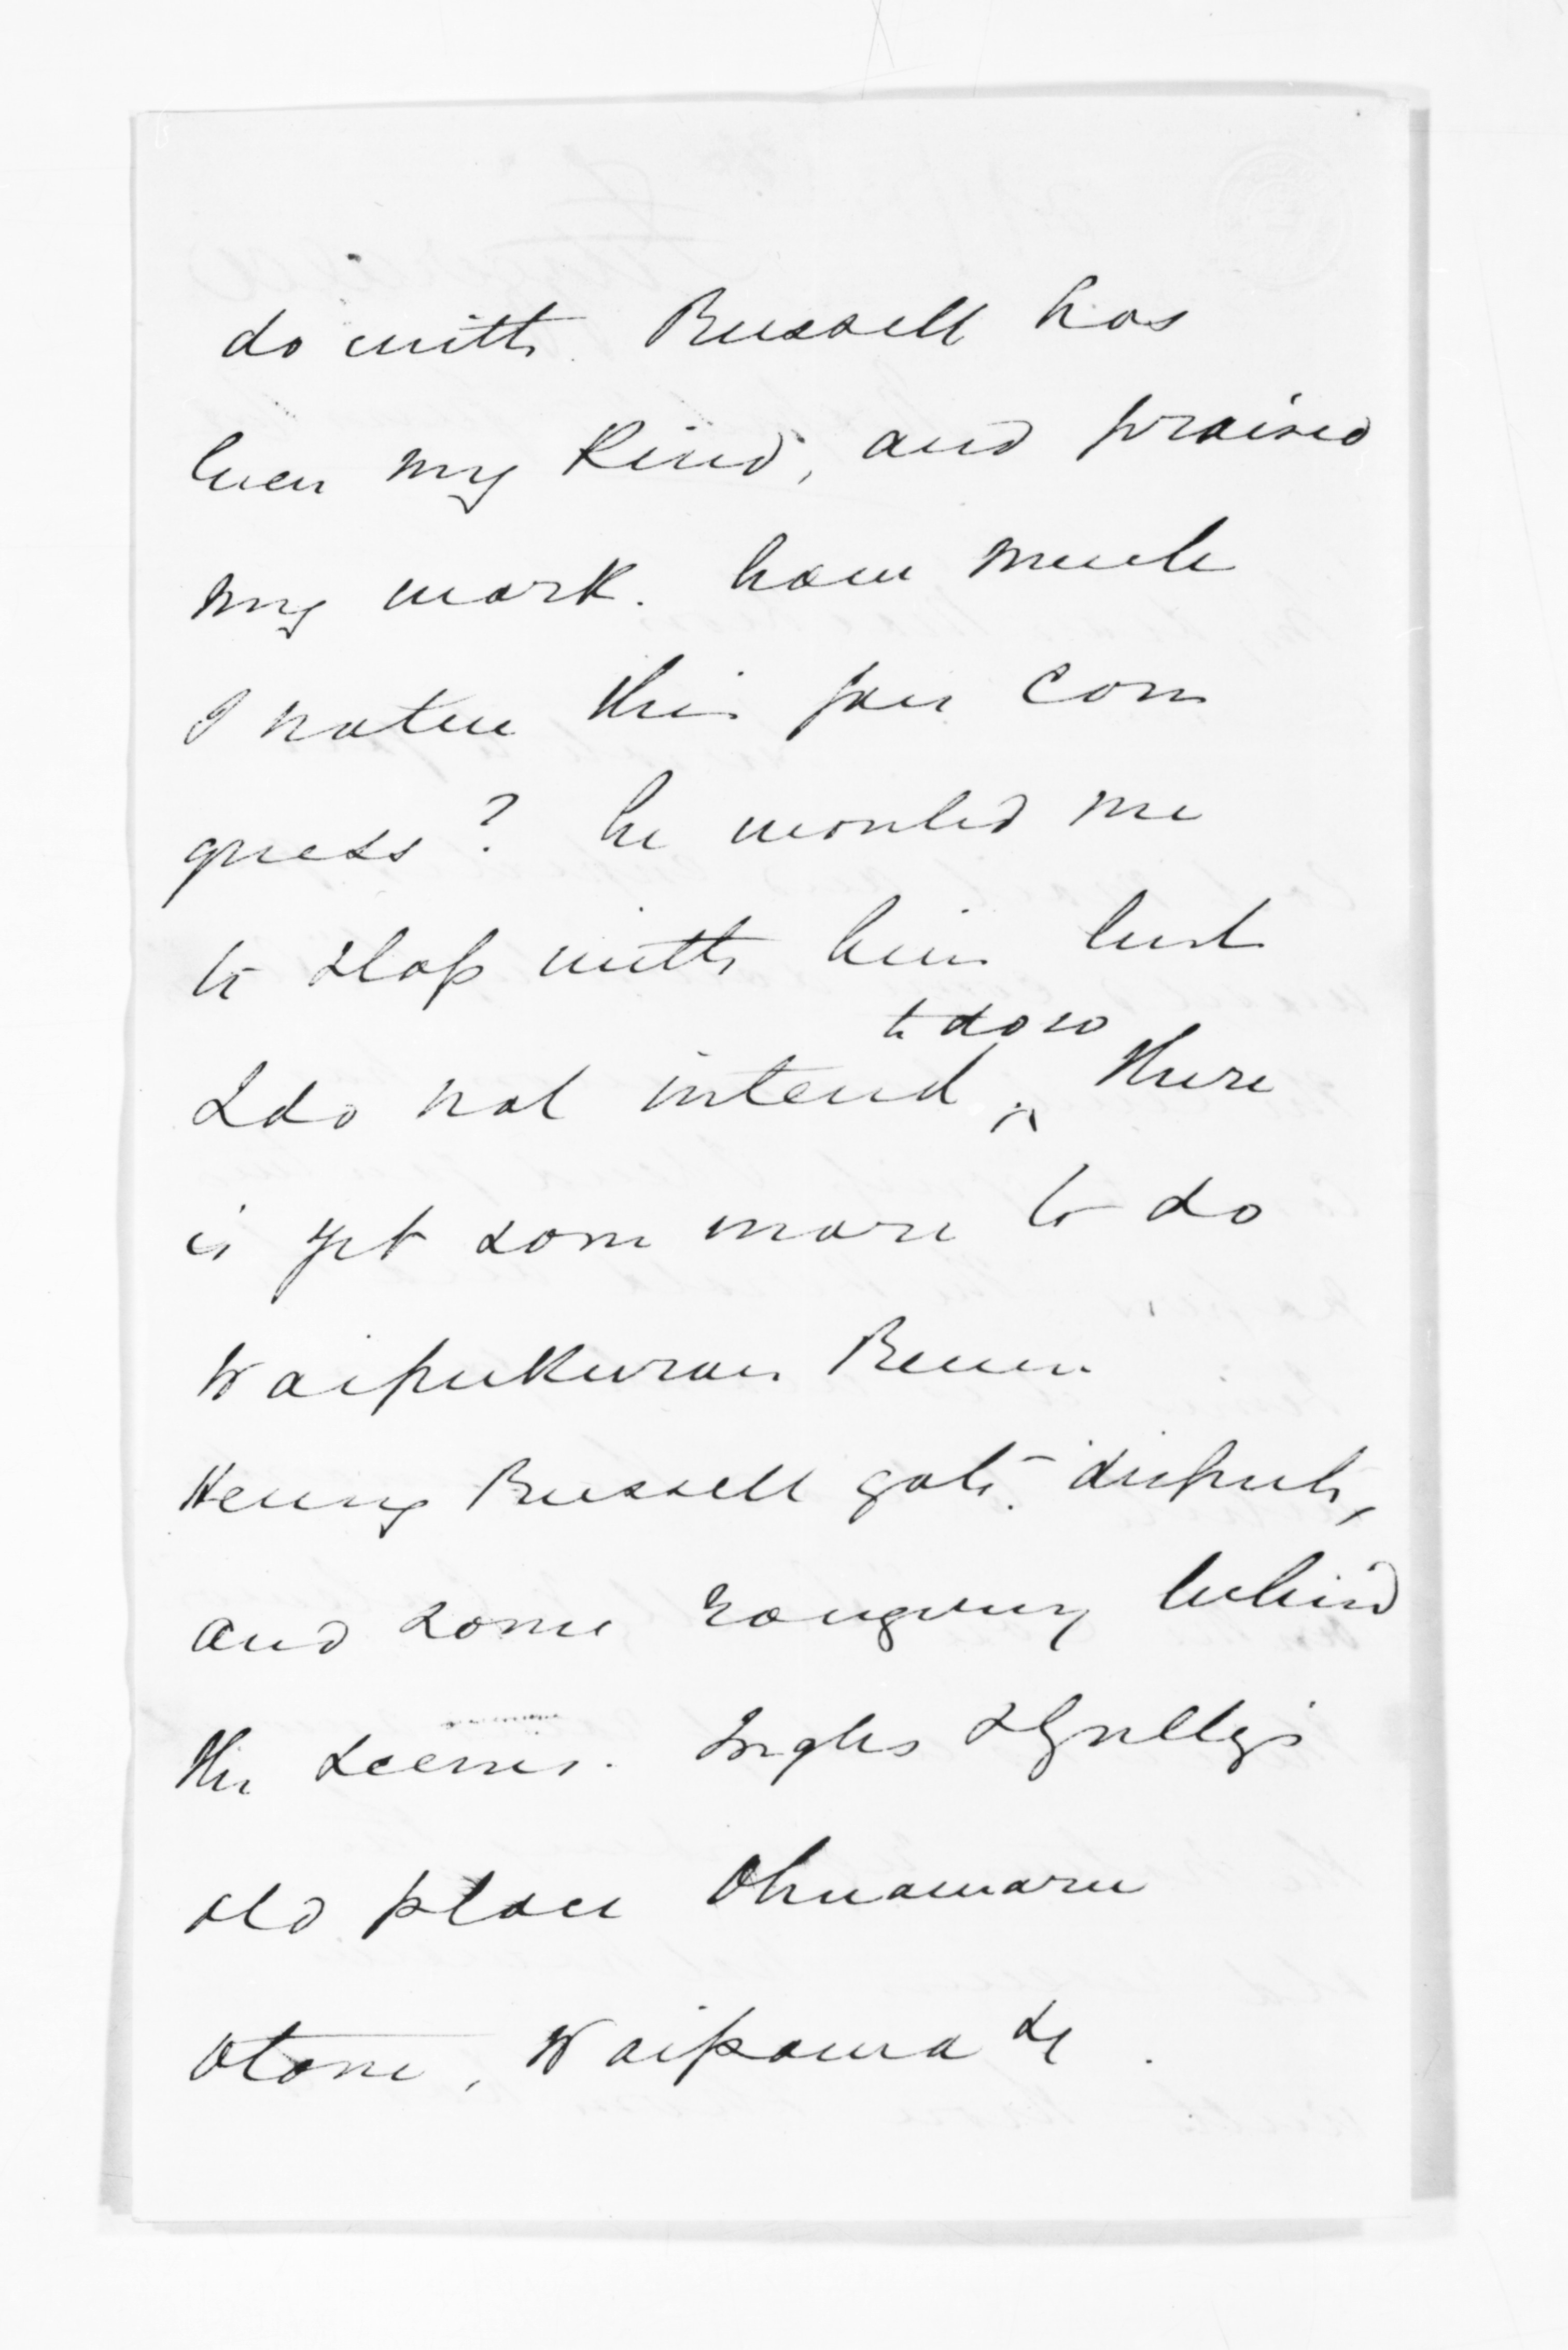 do with. Russell has
been my kind, and praised
my work. how much
I value this you can
guess? he wanted me
to stop with him but
I do not intend to do so. There
is yet some more to do
Waipukurau
Henry Russell dispute,
and some roguery behind
the scenes.
old place
Otane, Waipawa &c.